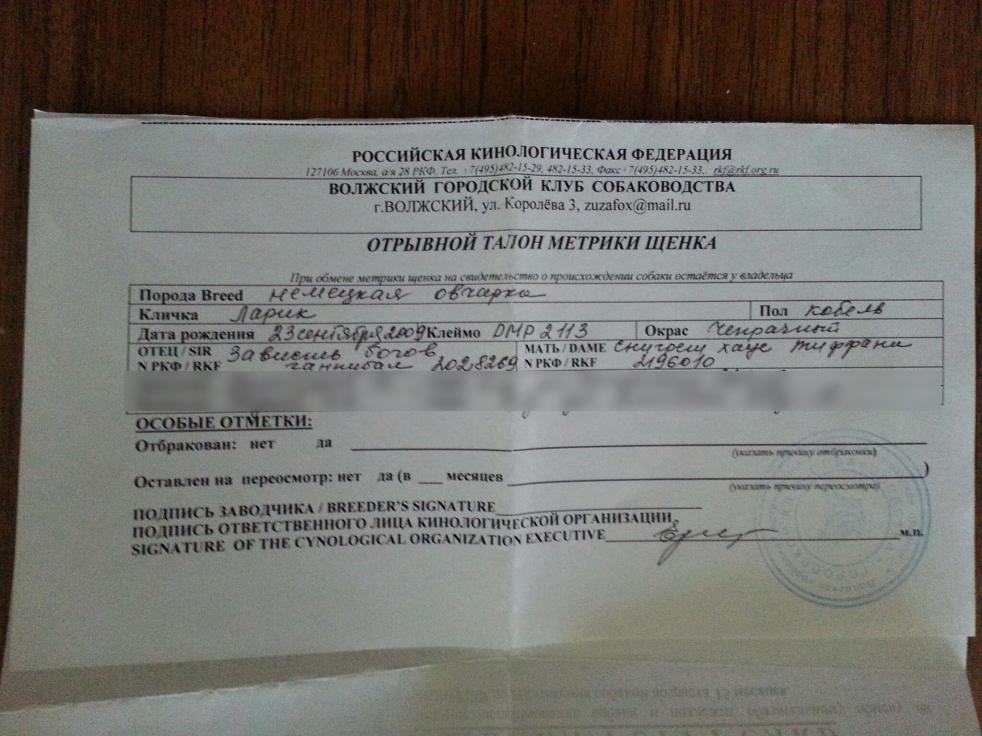 РОССИЙСКАЯ КИНОЛОГИЧЕСКАЯ ФЕДЕРАЦИЯ
127106 Москва, а/я 28 РКФ. Тел. +7(495)482-15-29, 482-15-33, Факс+7(495)482-15-33,. rkf@rkf.org.ru
ВОЛЖСКИЙ ГОРОДСКОЙ КЛУБ СОБАКОВОДСТВА
г.ВОЛЖСКИЙ, ул. Королёва 3, zuzafox@mail.ru
ОТРЫВНОЙ ТАЛОН МЕТРИКИ ЩЕНКА
При обмене метрики щенка на свидетельство о происхождении собаки остаётся у владельца
Порода Breed немецкая овчарка
Кличка Ларик Пол кобель
Дата рождения 23 сентября 2009 Клеймо DMP 2113 Окрас Чепрачный
ОТЕЦ / SIR Зависть богов МАТЬ / DAME Снигоем хаус тиффани
N РКФ / RKF ганнибал 2028269 N РКФ / RKF 2196010
ОСОБЫЕ ОТМЕТКИ:
Отбракован: нет да
(указать причину отбраковки)
Оставлен на пересмотр: нет да (в ___ месяцев )
(указать причину пересмотра)
ПОДПИСЬ ЗАВОДЧИКА / BREEDER'S SIGNATURE
ПОДПИСЬ ОТВЕТСТВЕННОГО ЛИЦА КИНОЛОГИЧЕСКОЙ ОРГАНИЗАЦИИ
SIGNATURE OF THE CYNOLOGICAL ORGANIZATION EXECUTIVE м.п.